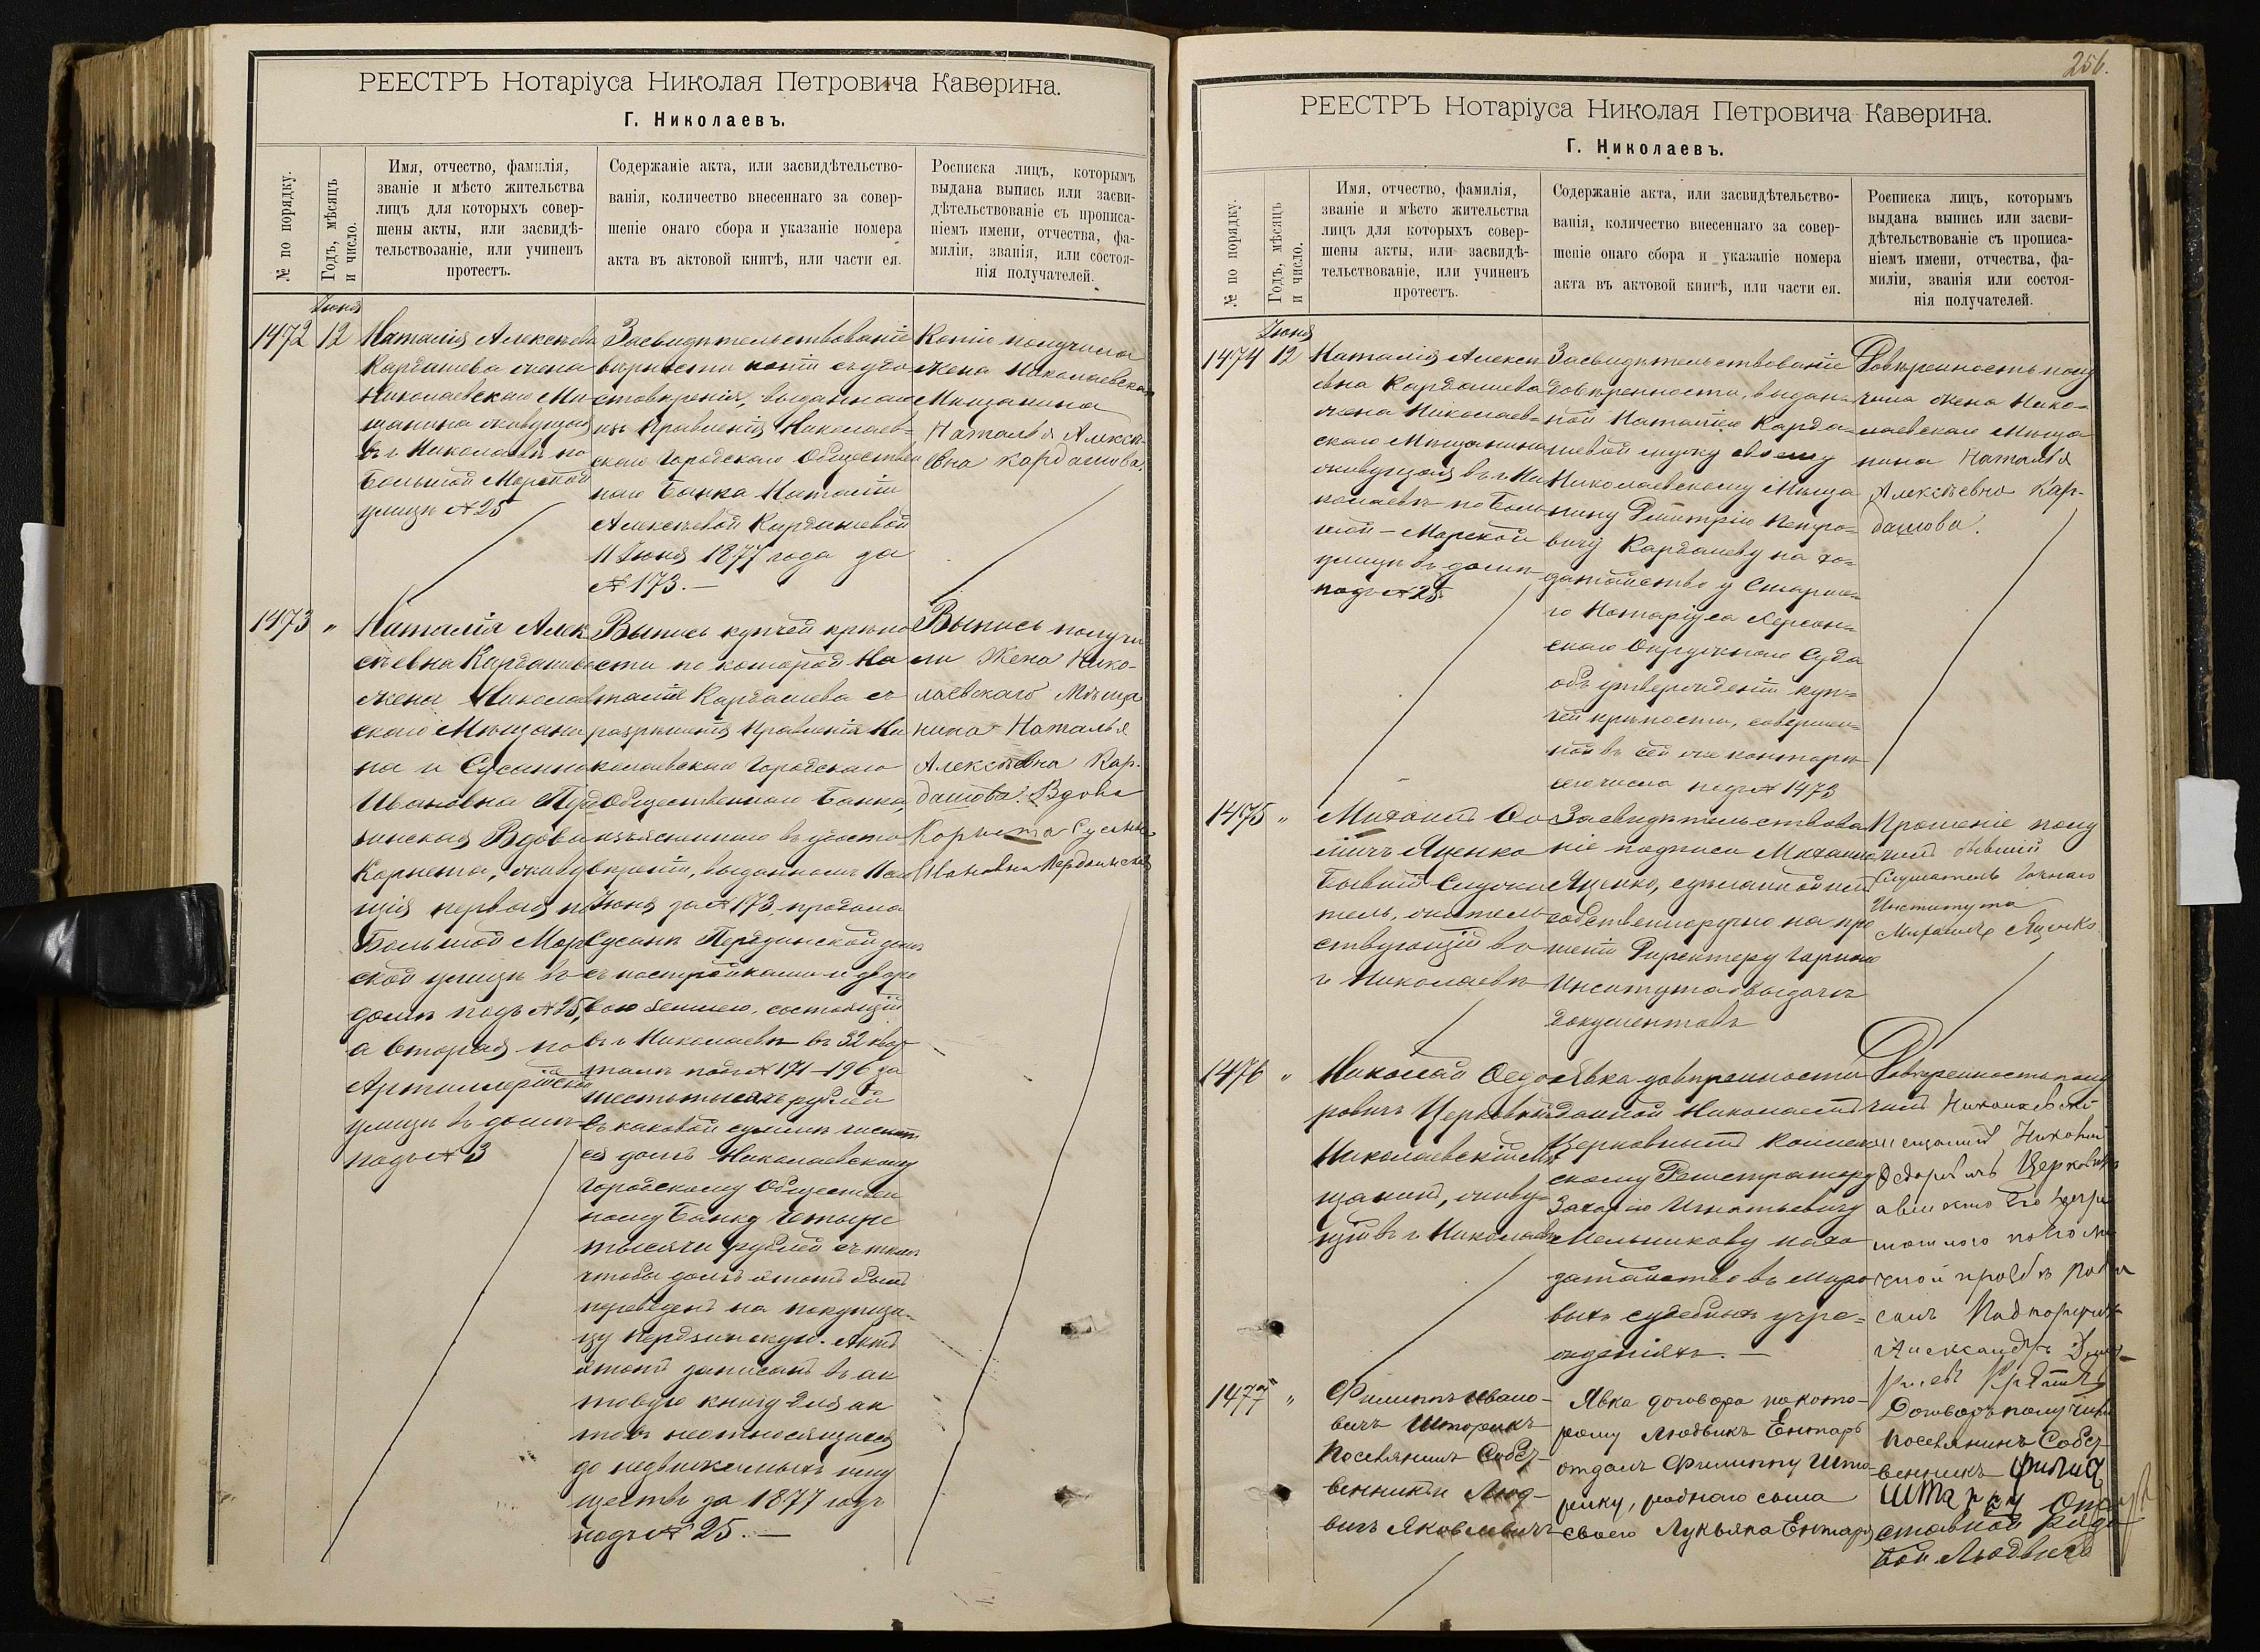 РЕЕСТРЪ Нотаріуса Николая Петровича Каверина.
Г. Николаевъ.
№ по порядку.
Годъ, мѣсяцъ
и число.
Имя, отчество, фамилія,
званіе и мѣсто жительства
лицъ для которыхъ совер-
шены акты, или засвидѣ-
тельствованіе, или учиненъ
протестъ.
Содержаніе акта, или засвидѣтельство-
ванія, количество внесеннаго за совер-
шеніе онаго сбора и указаніе номера
акта въ актовой книгѣ, или части ея.
Росписка лицъ, которымъ
выдана выпись или засви-
дѣтельствованіе съ прописа-
ніемъ имени, отчества, фа-
миліи, званія, или состоя-
нія получателей.
Іюня
1472
12
Наталія Алексѣева
Кардашева жена
Николаевскаго Мѣ
щанина живущая
въ г. Николаевѣ по
Большой Морской
улицѣ № 25
Засвидѣтельствованіе
вѣрности копіи съ удо
стовѣренія, выданнаго
изъ Правленія Николаев=
скаго Городскаго Обществен
наго Банка Наталіи
Алексѣевой Кардашевой
11 Іюня 1877 года за
№ 173.—
Копію получила
жена Николаевскаго
Мѣщанина
Наталья Алексѣ-
евна Кардашова.
1473
"
Наталія Алек
сѣевна Кардашева
жена Николаев
скаго Мѣщани
на и Сусанна
Ивановна Пердзинская Вдова
Корнета, живу
щія первая по
Большой Мор
ской улицѣ въ
домѣ подъ № 25,
а вторая по
Артиллерійской
улицѣ въ домѣ
подъ № 3
Выпись купчей крѣпо
сти по которой На
талія Кардашева съ
разрѣшенія Правленія Ни
колаевскаго Городскаго
Общественнаго Банка,
изъясненнаго въ удосто
вѣреніи, выданномъ 11
Іюня за № 173, продала
Сусаннѣ Пердзинской домъ
съ постройками и дворо
вою землею, состоящій
въ г. Николаевѣ въ 32 квар
талѣ подъ № 171–196 за
шесть тысячъ рублей
въ каковой суммѣ числит
ся долгъ Николаевскому
Городскому Обществен
ному Банку четыре
тысячи рублей съ тѣмъ
чтобы долгъ этотъ былъ
переведенъ на покупщи-
цу Пердзинскую. Актъ
этотъ записанъ въ ак
товую книгу для ак
товъ неотносящихся
до недвижимыхъ иму
ществъ за 1877 годъ
подъ № 25.—
Выпись получи
ли Жена Нико-
лаевскаго Мѣща
нина Наталья
Алексѣевна Кар-
дашова. Вдова
Корнета Сусанна
Ивановна Пердзинская
256.
РЕЕСТРЪ Нотаріуса Николая Петровича Каверина.
Г. Николаевъ.
№ по порядку.
Годъ, мѣсяцъ
и число.
Имя, отчество, фамилія,
званіе и мѣсто жительства
лицъ для которыхъ совер-
шены акты, или засвидѣ-
тельствованіе, или учиненъ
протестъ.
Содержаніе акта, или засвидѣтельство-
ванія, количество внесеннаго за совер-
шеніе онаго сбора и указаніе номера
акта въ актовой книгѣ, или части ея.
Росписка лицъ, которымъ
выдана выпись или засви-
дѣтельствованіе съ прописа-
ніемъ имени, отчества, фа-
миліи, званія или состоя-
нія получателей.
Іюня
1474
12
Наталія Алексѣ
евна Кардашева
жена Николаев=
скаго Мѣщанина
живущая въ г. Ни
колаевѣ по Боль
шой-Морской
улицѣ въ домѣ
подъ № 25.
Засвидѣтельствованіе
довѣренности, выдан=
ной Наталіею Карда=
шевой мужу своему
Николаевскому Мѣща
нину Дмитрію Петро=
вичу Кардашеву на хо=
датайство у Старша=
го Нотаріуса Херсон=
скаго Окружнаго Суда
объ утвержденіи куп=
чей крѣпости, совершен=
ной въ сей же конторѣ
сего числа подъ № 1473
Довѣренность полу
чила жена Нико=
лаевскаго Мѣща
нина Наталья
Алексѣевна Кар-
дашова.
1475
"
Михаилъ
Яценко
бывшій Слуша
тель, житель
ствующій въ
г. Николаевѣ
Засвидѣтельствова
ніе подписи Михаила
Яценко, сдѣланной имъ
собственноручно на про
шеніи Директору Горнаго
Института о выдачѣ
документовъ
Прошеніе полу
чилъ бывшій
Слушатель Горнаго
Института
Михаилъ Яценко.
1476
"
Николай Ѳедо
ровичъ Церковный
Николаевскій мѣ
щанинъ, живу=
щій въ г. Николаевѣ
Явка довѣренности
данной Николаемъ
Церковнымъ Коллеж
скому Регистратору
Захарію Игнатьевичу
Мельникову на хо
датайство въ Миро
выхъ судебныхъ учре=
жденіяхъ.—
Довѣренность полу
чилъ Николаевскій
мещанинъ Николай
Федоровичъ Церковный
а вместо Его неграмотнаго по его лич
ной прозбѣ росписалъ
Александръ
1477
"
Филиппъ Ивано-
вичъ Шторикъ
Поселянинъ Собст-
венникъ и Люд-
вигъ Яковлевичъ
Явка договора по кото-
рому Людвикъ Ентаръ
отдалъ Филиппу Што-
рику, роднаго сына
своего Лукьяна Ентаръ
Договоръ получилъ
поселянинъ Собст
венникъ
ставной рядо
вой Людвигъ